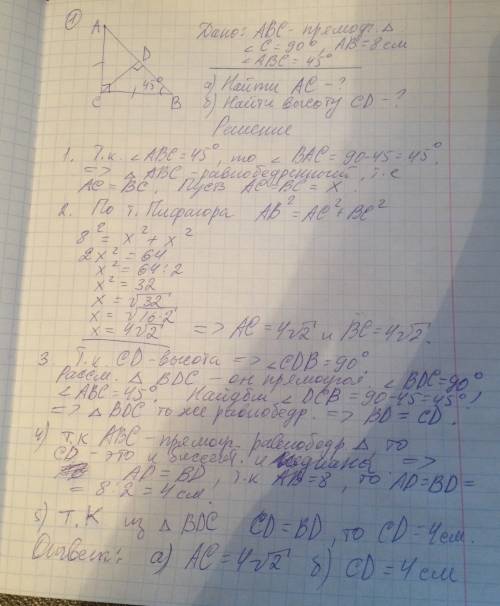 1
A
D
45°
C
B
Дано: ABC - прямоуг. Δ
∠C = 90°, AB = 8 см
∠ABC = 45°
а) Найти AC - ?
б) Найти высоту CD - ?
Решение
1. Т.к. ∠ABC = 45°, то ∠BAC = 90-45 = 45°.
=> Δ ABC - равнобедренный, т.е
AC = BC. Пусть AC = BC = x.
2. По т. Пифагора AB² = AC² + BC²
8² = x² + x²
2x² = 64
x² = 64:2
x² = 32
x = √32
x = √16·2
x = 4√2 => AC = 4√2 и BC = 4√2.
3. Т.к. CD - высота => ∠CDB = 90°
Рассм. Δ BDC - он прямоугол. ∠BDC = 90°
∠ABC = 45°. Найдём ∠DCB = 90-45 = 45°,
=> Δ BDC тоже равнобедр. => BD = CD.
4) Т.к ABC - прямоуг. равнобедр Δ то
CD - это и биссект. и медиана =>
AD = BD, т.к AB = 8, то AD = BD =
= 8:2 = 4 см.
5) Т.к из Δ BDC CD = BD, то CD = 4 см.
Ответ: а) AC = 4√2 б) CD = 4 см